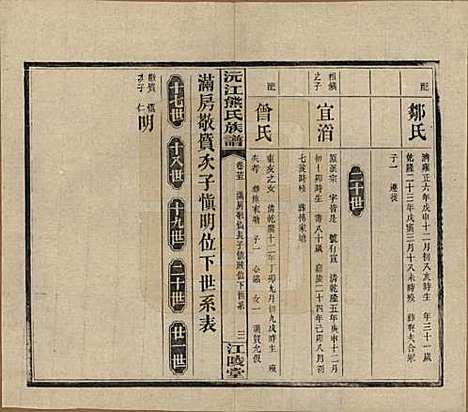 配
鄒氏
清雍正六年戊申十二月初八亥時生 年三十一歲
乾隆二十三年戊寅三月十八未時殁 葬奉天合家
子一 遷徙
二十世
相候
之子
宜滔
原派宗 字省是 號有直 清乾隆五年庚申十二月
初十卯時生 壽八十歲 嘉慶二十四年己卯八月
七寅時殁 葬傅家塘
配
曾氏
東友之女 清乾隆十二年丁卯九月初九戌時生 殁
失考 葬傅家塘 子一 女一 適賀允假
沅江熊氏族譜
滿房敬質次子慎明位下世系
三
江陵堂
滿房敬質次子慎明位下世系表
十七世
十八世
十九世
二十世
廿一世
敬質
次子
慎
仁
明